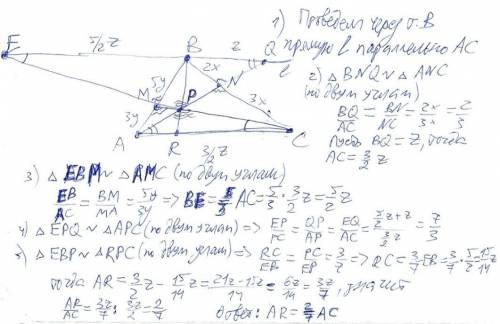 E
5/2 z
B
z
Q
l
2x
N
5y
M
P
3x
3y
A
R
3/2 z
C
1) Проведем через т. B
прямую l параллельно AC
2) △BNQ ∾ △ANC
(по двум углам)
BQ/AC = BN/NC = 2x/3x = 2/3
Пусть BQ = z, тогда
AC = 3/2 z
3) △EBM ∾ △AMC (по двум углам)
EB/AC = BM/MA = 5y/3y => BE = 5/3 AC = 5/3 · 3/2 z = 5/2 z
4) △EPQ ∾ △APC (по двум углам) => EP/PC = QP/AP = EQ/AC = (5/2 z + z)/(3/2 z) = 7/3
5) △EBP ∾ △RPC (по двум углам) => RC/EB = PC/EP = 3/7 => RC = 3/7 EB = 3/7 · 5/2 z = 15/14 z
тогда AR = 3/2 z - 15/14 z = (21z - 15z)/14 = 6z/14 = 3z/7, значит
AR/AC = 3z/7 : 3z/2 = 2/7
Ответ: AR = 2/7 AC